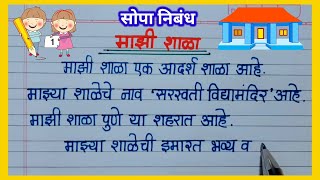 सोपा निबंध
माझी शाळा
माझी शाळा एक आदर्श शाळा आहे.
माझ्या शाळेचे नाव 'सरस्वती विद्यामंदिर' आहे.
माझी शाळा पुणे या शहरात आहे.
माझ्या शाळेची इमारत भव्य व